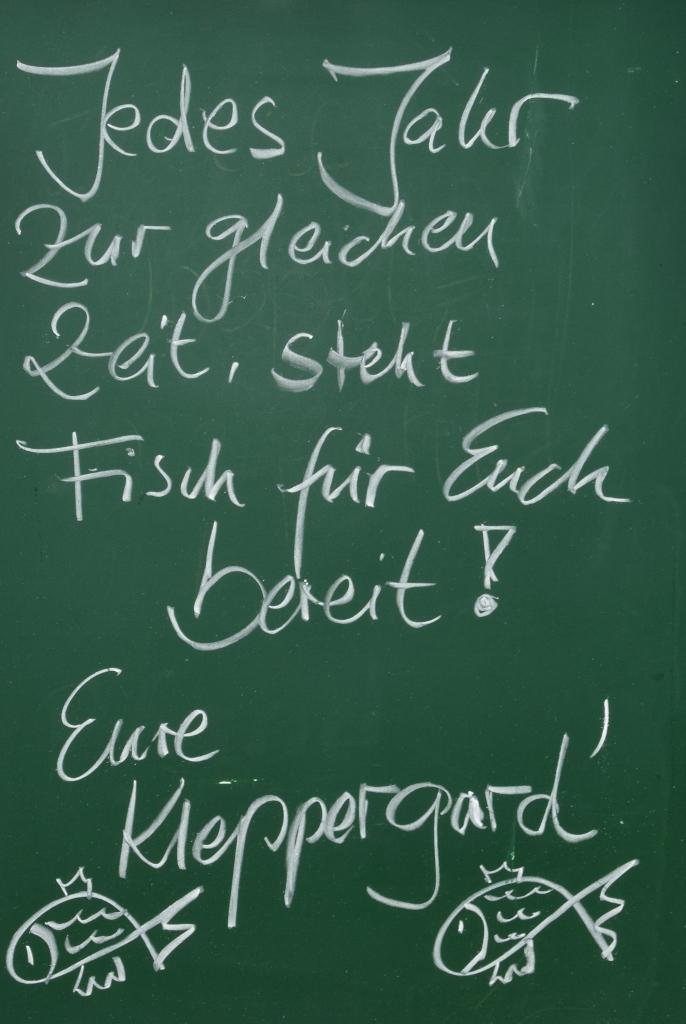 Jedes Jahr
zur gleichen
Zeit, steht
Fisch für Euch
bereit!
Eure
Kleppergard'